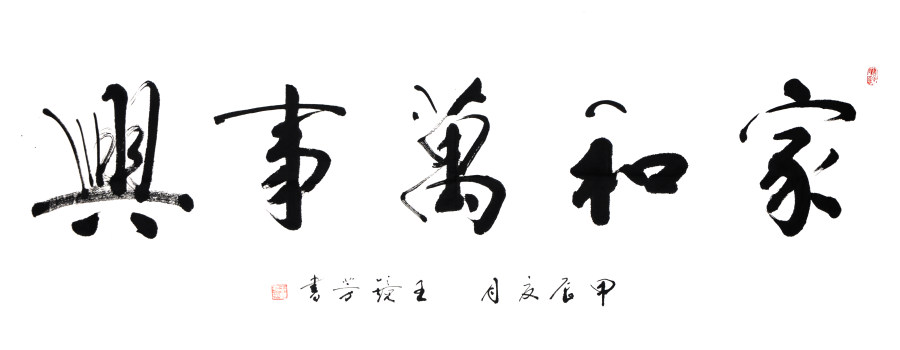 家和萬事興
甲辰夏月 王芳書